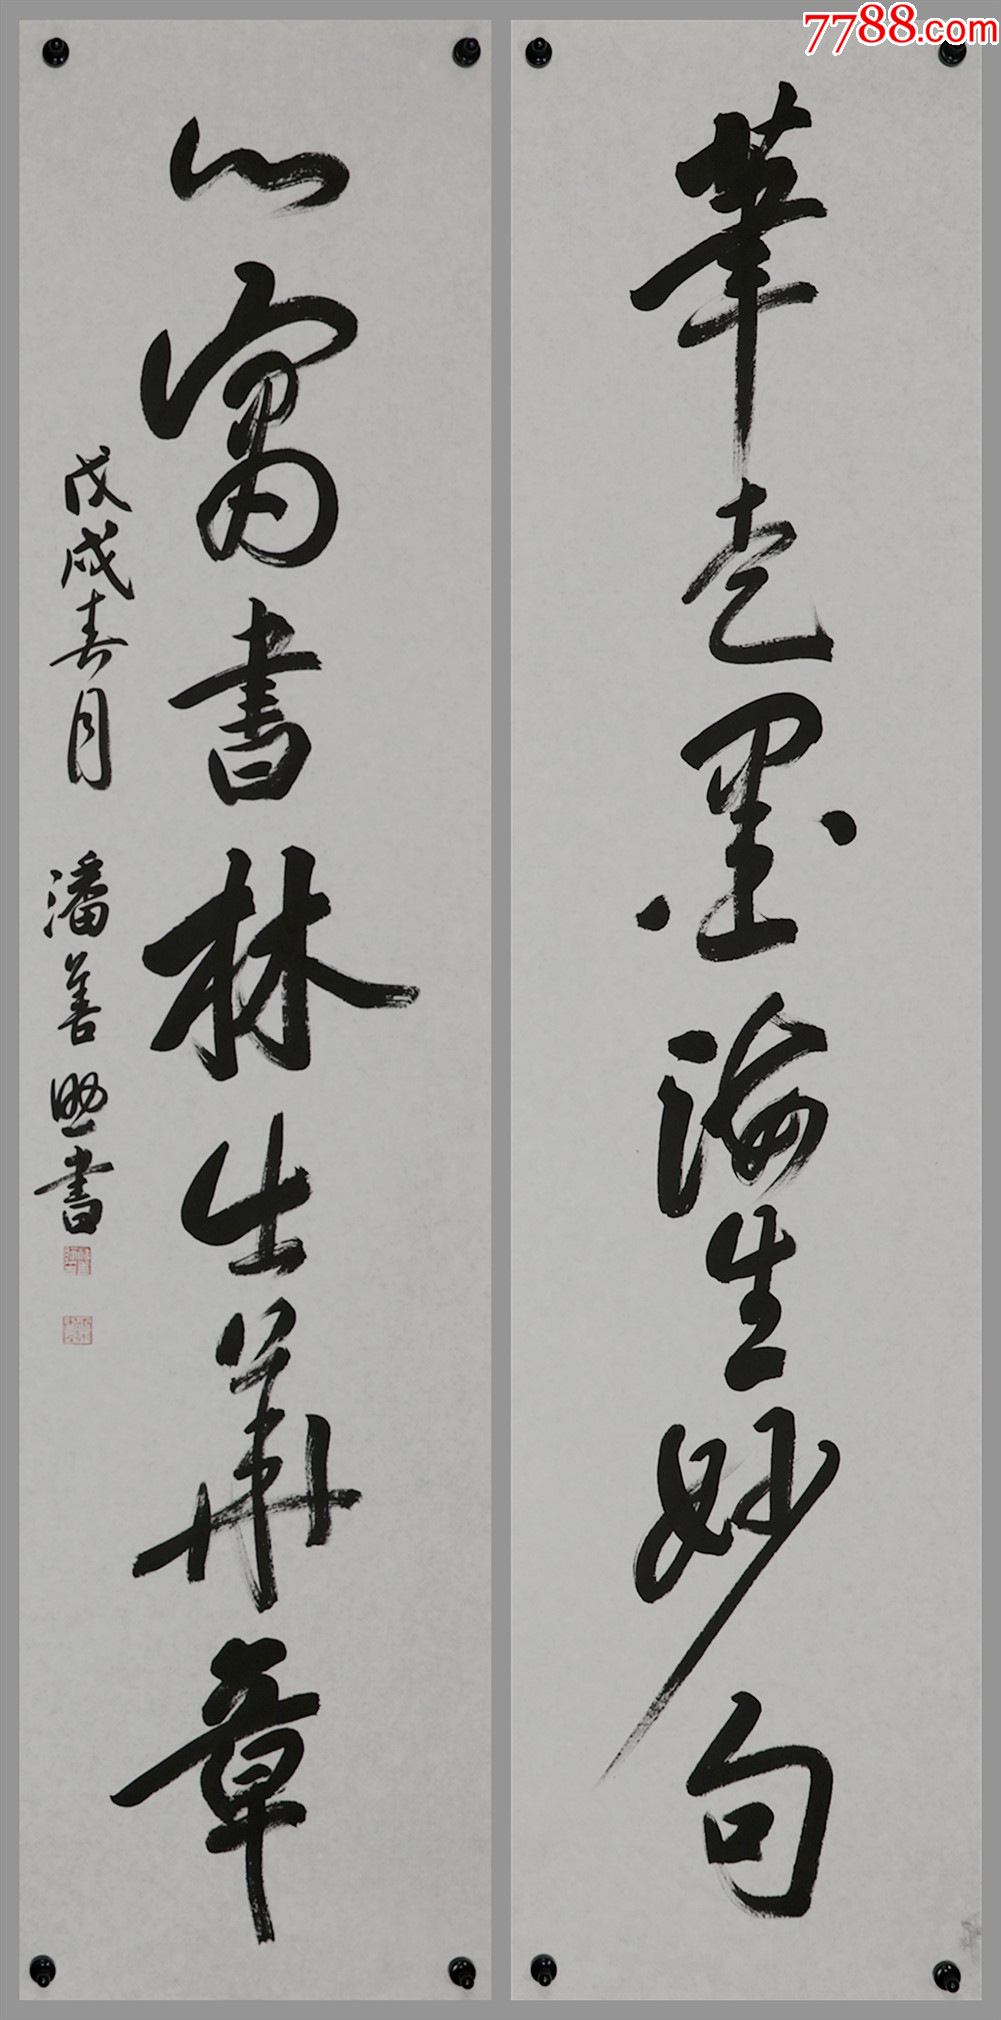 7788.com
筆走墨海生妙句
心寓書林出華章
戊戌春月 潘善助書